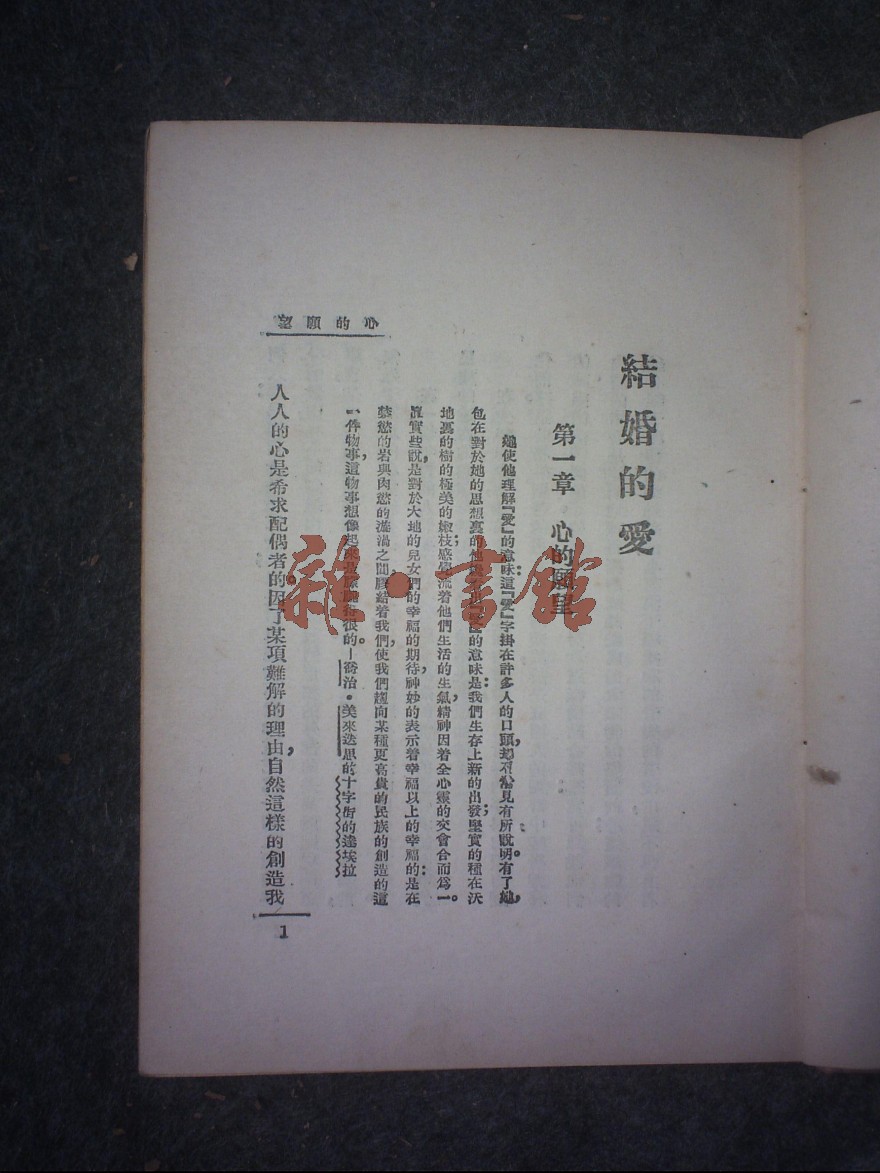 結婚的愛
第一章 心的願望
她使他理解『愛』的意味：這『愛』字掛在許多人的口頭，却不常見有所說明。有了她，
包在對於她的思想裏的他
的意味是：我們生存上新的出發；堅實的種在沃
地裏的樹的極美的嫩枝；感
流着他們生活的生氣，精神因着全心靈的交會合而爲一。
眞實些說，是對於大地的兒女們的幸福的期待，神妙的表示着幸福以上的幸福的：是在
禁慾的岩與肉慾的漩渦之間，膠結着我們，使我們趨向某種更高貴的民族的創造的這
一件物事，這物事想像起來
很的。—喬治·美來迭思的十字街的達埃拉
人人的心是希求配偶者的。因了某項難解的理由，自然這樣的創造我
心的願望
1
雜·書館